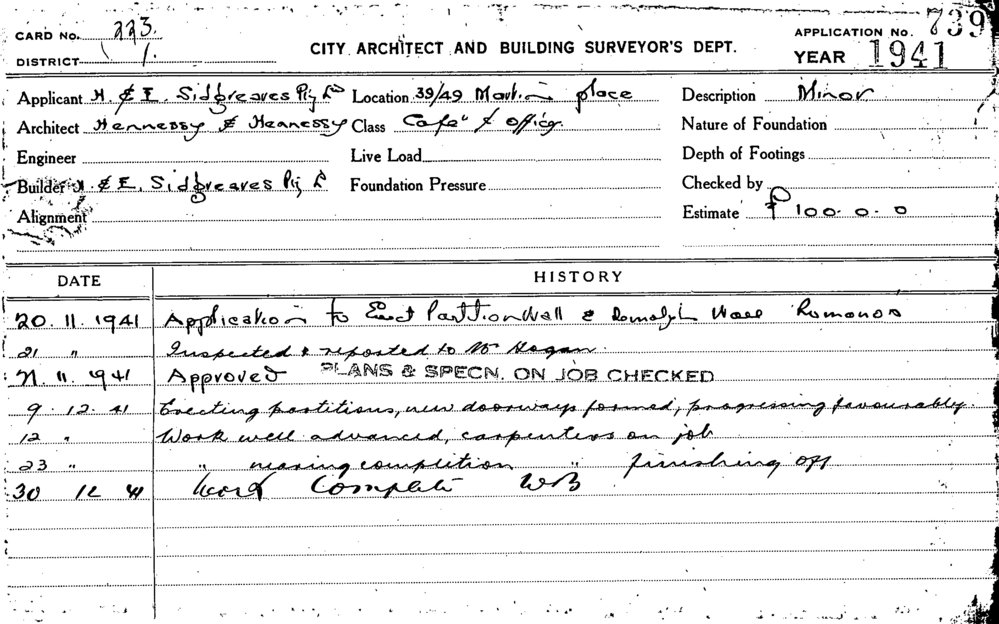 CARD No. 223.
APPLICATION No. 739
DISTRICT 1.
CITY ARCHITECT AND BUILDING SURVEYOR'S DEPT.
YEAR 1941
Applicant H. & E. Sidgreaves Pty Ld Location 39/49 Martin place Description Minor
Architect Hennessy & Hennessy Class Cafe & office Nature of Foundation
Engineer Live Load Depth of Footings
Builder H & E. Sidgreaves Pty L Foundation Pressure Checked by
Alignment Estimate £ 100. 0. 0
DATE HISTORY
20. 11. 1941 Application to Erect Partition Wall & Demolish Wall Romanos
21 " Inspected & reported to Mr Hogan.
21. 11. 1941 Approved PLANS & SPECN. ON JOB CHECKED
9. 12. 41 Erecting partitions, new doorways formed, progressing favourably.
12 " Work well advanced, carpenters on job
23 " " nearing completion " finishing off
30 12 41 Work Complete WB